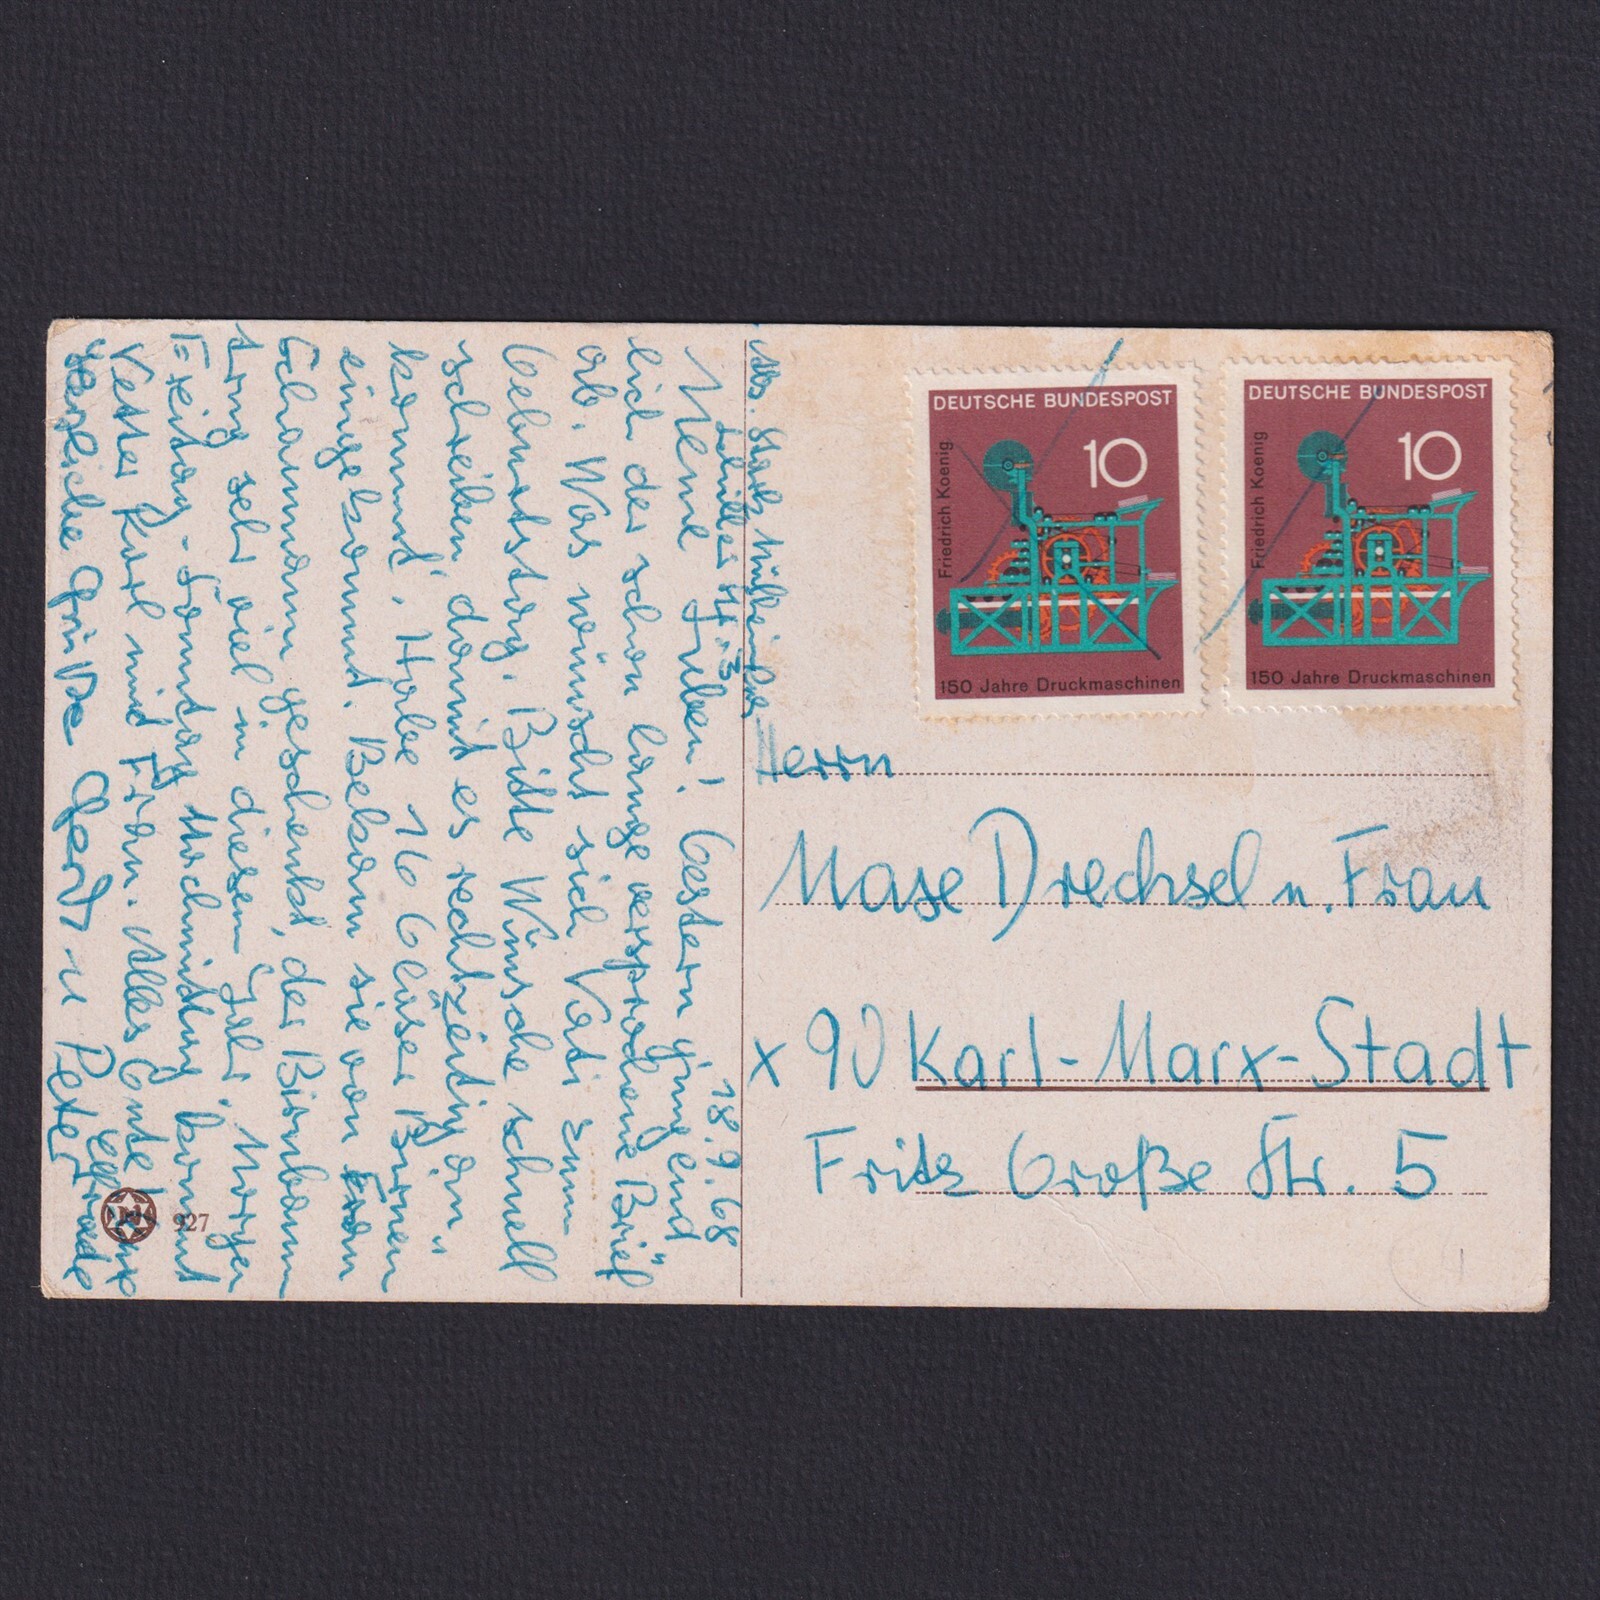 DEUTSCHE BUNDESPOST
10
Friedrich Koenig
150 Jahre Druckmaschinen
DEUTSCHE BUNDESPOST
10
Friedrich Koenig
150 Jahre Druckmaschinen
Herrn
Drechsel u. Frau
x 90 Karl-Marx-Stadt
Fritz Große Str. 5
Abs.
18.9.68
Meine Lieben! Gestern ging end
lich der schon lange versprochene Brief
ab. Was wünscht sich Vati zum
Geburtstag. Bitte Wünsche schnell
schreiben damit es rechtzeitig an„
kommt. Habe 16 Gläser Birnen
eingekommt. Bekam sie von Frau
Schaumann geschenkt, der Birnbaum
trug sehr viel in diesem Jahr. Morgen
Freitag - Sonntag Nachmittag kommt
Vetter Karl mit Frau. Alles Gute!
Herzliche Grüße Gerdi u Peter
927